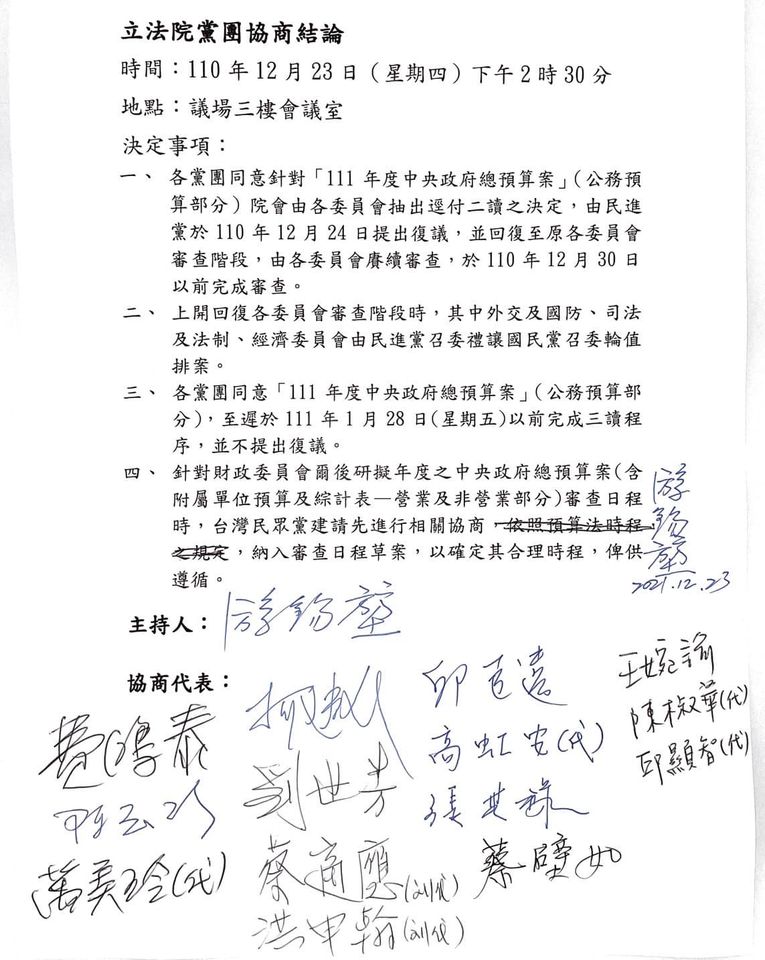 立法院黨團協商結論
時間：110 年 12 月 23 日（星期四）下午 2 時 30 分
地點：議場三樓會議室
決定事項：
一、 各黨團同意針對「111 年度中央政府總預算案」（公務預
算部分）院會由各委員會抽出逕付二讀之決定，由民進
黨於 110 年 12 月 24 日提出復議，並回復至原各委員會
審查階段，由各委員會賡續審查，於 110 年 12 月 30 日
以前完成審查。
二、 上開回復各委員會審查階段時，其中外交及國防、司法
及法制、經濟委員會由民進黨召委禮讓國民黨召委輪值
排案。
三、 各黨團同意「111 年度中央政府總預算案」（公務預算部
分），至遲於 111 年 1 月 28 日(星期五)以前完成三讀程
序，並不提出復議。
四、 針對財政委員會爾後研擬年度之中央政府總預算案(含
附屬單位預算及綜計表—營業及非營業部分)審查日程
時，台灣民眾黨建請先進行相關協商，依照預算法時程
之規定，納入審查日程草案，以確定其合理時程，俾供
遵循。
游錫堃
2021.12.23
主持人：游錫堃
協商代表：
費鴻泰
陳玉珍
萬美玲(代)
柯建銘
劉世芳
蔡適應(劉代)
洪申翰(劉代)
邱臣遠
高虹安(代)
張其祿
蔡壁如
王婉諭
陳椒華(代)
邱顯智(代)